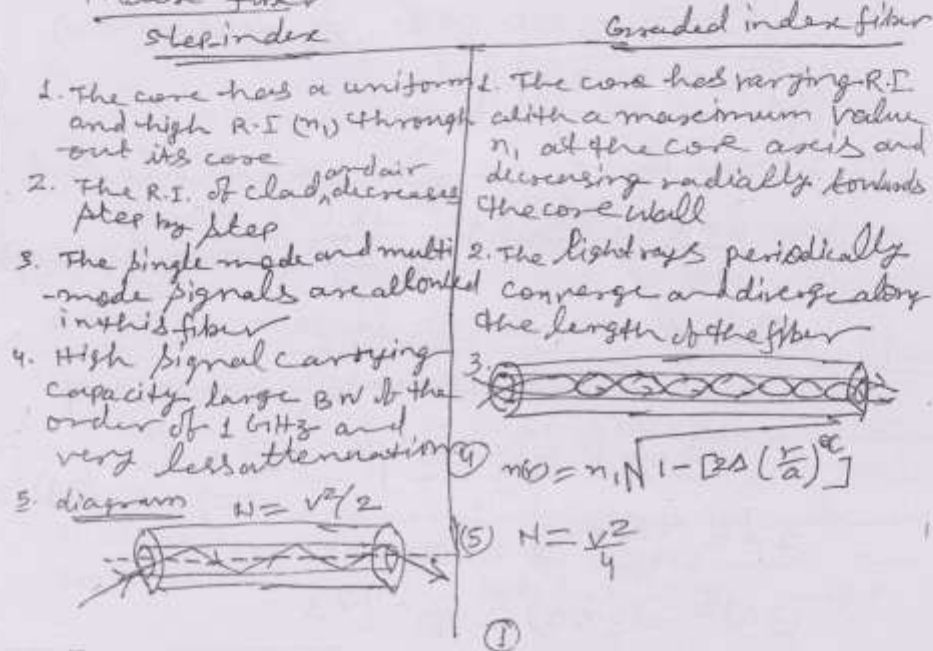 fiber
Step-index
1. The core has a uniform
and high R.I (n₁) through
out its core
2. The R.I. of clad, and air decreases
step by step
3. The single mode and multi
-mode signals are allowed
in this fiber
4. High signal carrying
capacity large BW of the
order of 1 GHz and
very less attenuation
5. diagram N = V²/2
Graded index fiber
1. The core has varying R.I.
with a maximum value
n₁ at the core axis and
decreasing radially towards
the core wall
2. The light rays periodically
converge and diverge along
the length of the fiber
3.
4) n(r) = n₁ √1 - [2Δ (r/a)^α]
(5) N = V²/4
1